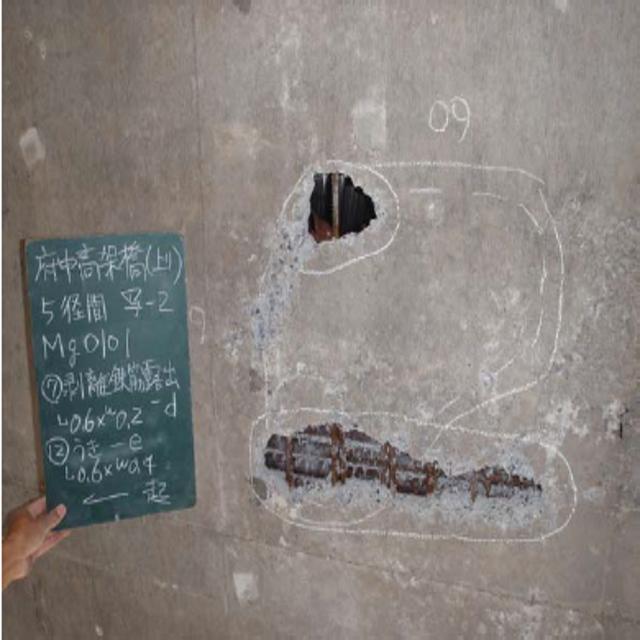 09
府中高架橋(上)
5径間 子-2
Mg0101
⑦剥離鉄筋露出
L0.6×W0.2-d
⑫うき-e
L0.6×W0.4
← 起